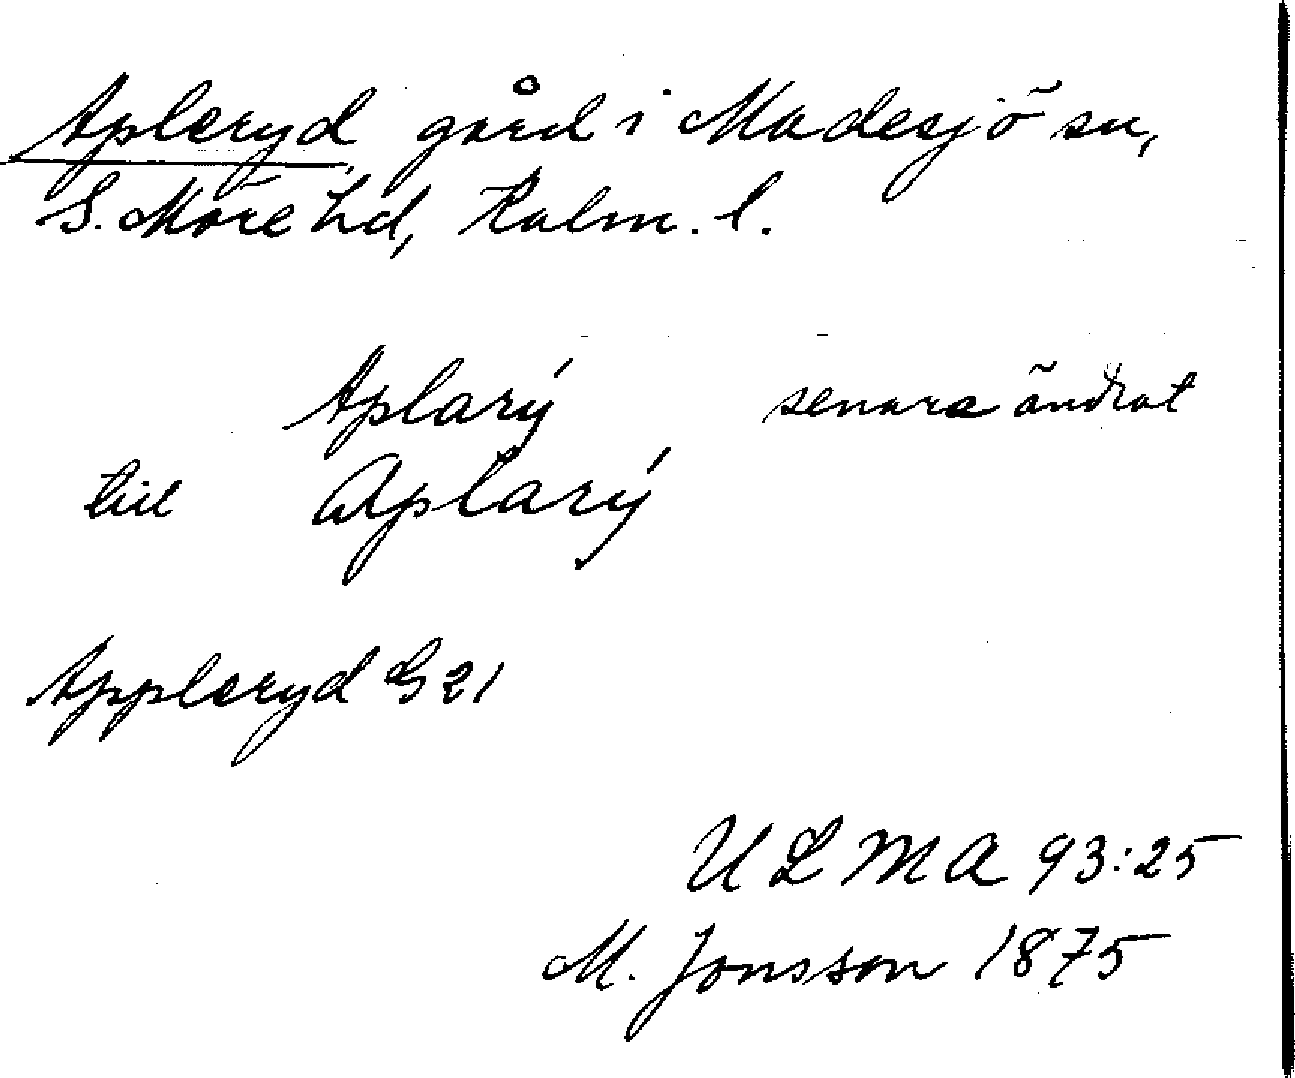 Apleryd gård i Madesjö sn,
S. Möre hd, Kalm. l.
Aplarý senare ändrat
till Aplarý
Appleryd G 21
ULMA 93:25
M. Jonsson 1875